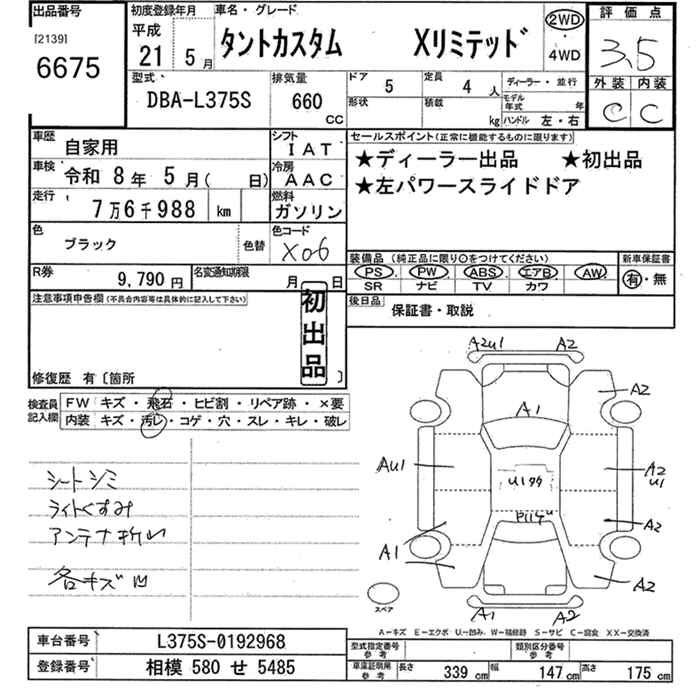 出品番号
[2139]
6675
初度登録年月
平成
21 5月
車名・グレード
タントカスタム Xリミテッド
2WD
・
4WD
評価点
3.5
外装 内装
C C
型式
DBA-L375S
排気量
660
CC
ドア 5
定員 4人
形状
積載 kg
ディーラー・並行
モデル年式 年
ハンドル 左・右
車歴 自家用
シフト IAT
車検 令和 8年 5月( 日)
冷房 AAC
走行 7万6千988 km
燃料 ガソリン
色 ブラック
色替
色コード X06
R券 9,790円
名変通知期限 月 日
セールスポイント(正常に機能するものに限ります)
★ディーラー出品 ★初出品
★左パワースライドドア
装備品(純正品に限り○をつけてください)
PS. PW. ABS. エアB. AW.
SR ナビ TV カワ
新車保証書
有・無
後日品 保証書・取説
注意事項申告欄(不具合内容等は具体的に記入して下さい)
初出品
修復歴 有〔箇所 〕
検査員記入欄
FW キズ・飛石・ヒビ割・リペア跡・×要
内装 キズ・汚レ・コゲ・穴・スレ・キレ・破レ
シートシミ
ライトくすみ
アンテナ折レ
各キズ凹
A2U1 A2
A1
A2
AU1
A2
U1
A2
A1
A2
A1 A2
スペア
A―キズ E―エクボ U―凹み W―補修跡 S―サビ C―腐食 XX―交換済
車台番号 L375S-0192968
登録番号 相模 580 せ 5485
型式指定番号
参考
類別区分番号
参考
車庫証明用
参考
長さ 339cm 幅 147cm 高さ 175cm